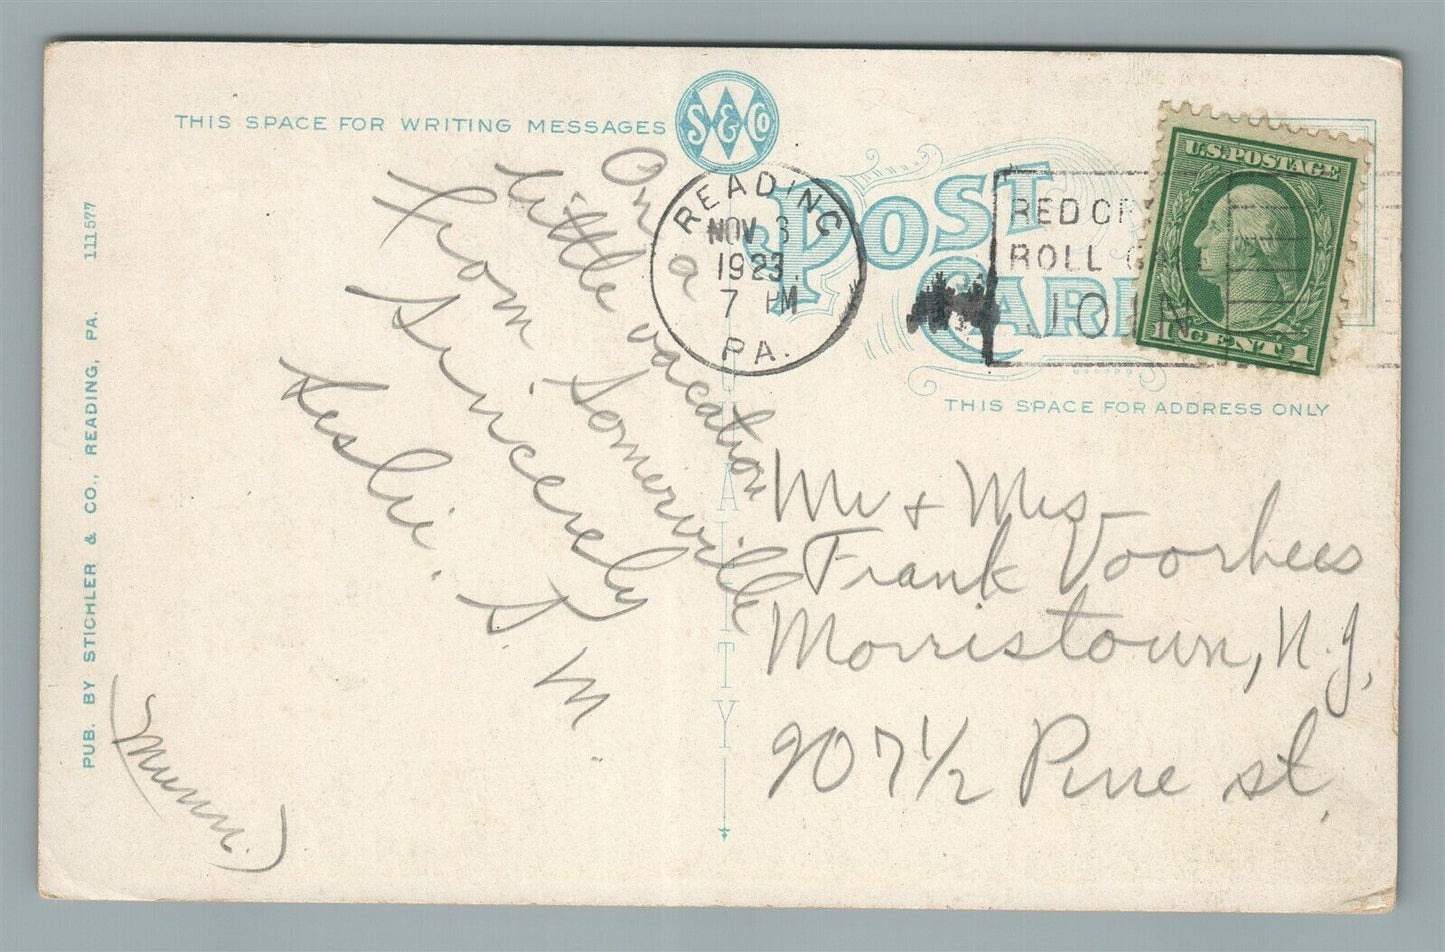 THIS SPACE FOR WRITING MESSAGES
S & Co
POST CARD
QUALITY
THIS SPACE FOR ADDRESS ONLY
PUB. BY STICHLER & CO., READING, PA. 111577
READING
NOV 3
1923
7 PM
PA.
RED CR
ROLL C
JOIN
U.S. POSTAGE
1 CENT 1
On a
little vacation
from Somerville
Sincerely
Leslie. S. M.
(Munn.)
Mr + Mrs
Frank Voorhees
Morristown, N.J,
207 1/2 Pine st.